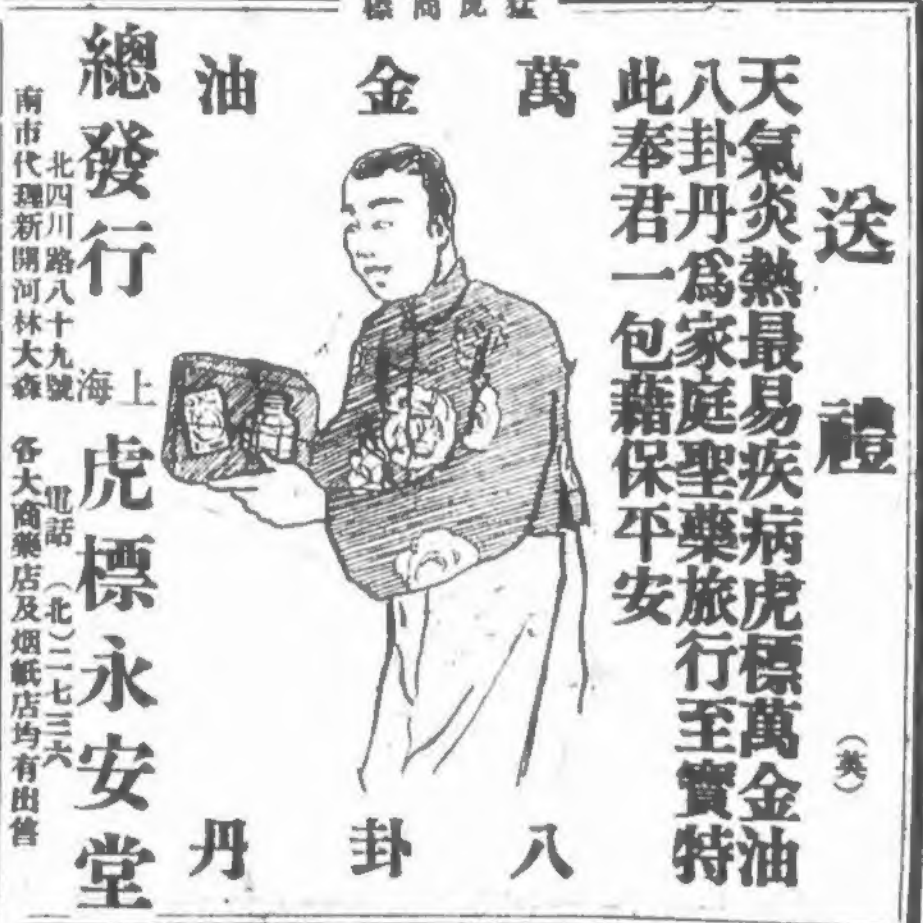 猛虎商標
送禮
（英）
天氣炎熱最易疾病虎標萬金油
八卦丹爲家庭聖藥旅行至寶特
此奉君一包藉保平安
萬金油
八卦丹
總發行上海虎標永安堂
北四川路八十九號 電話（北）二七三六
南市代理新開河林大森 各大商藥店及烟紙店均有出售